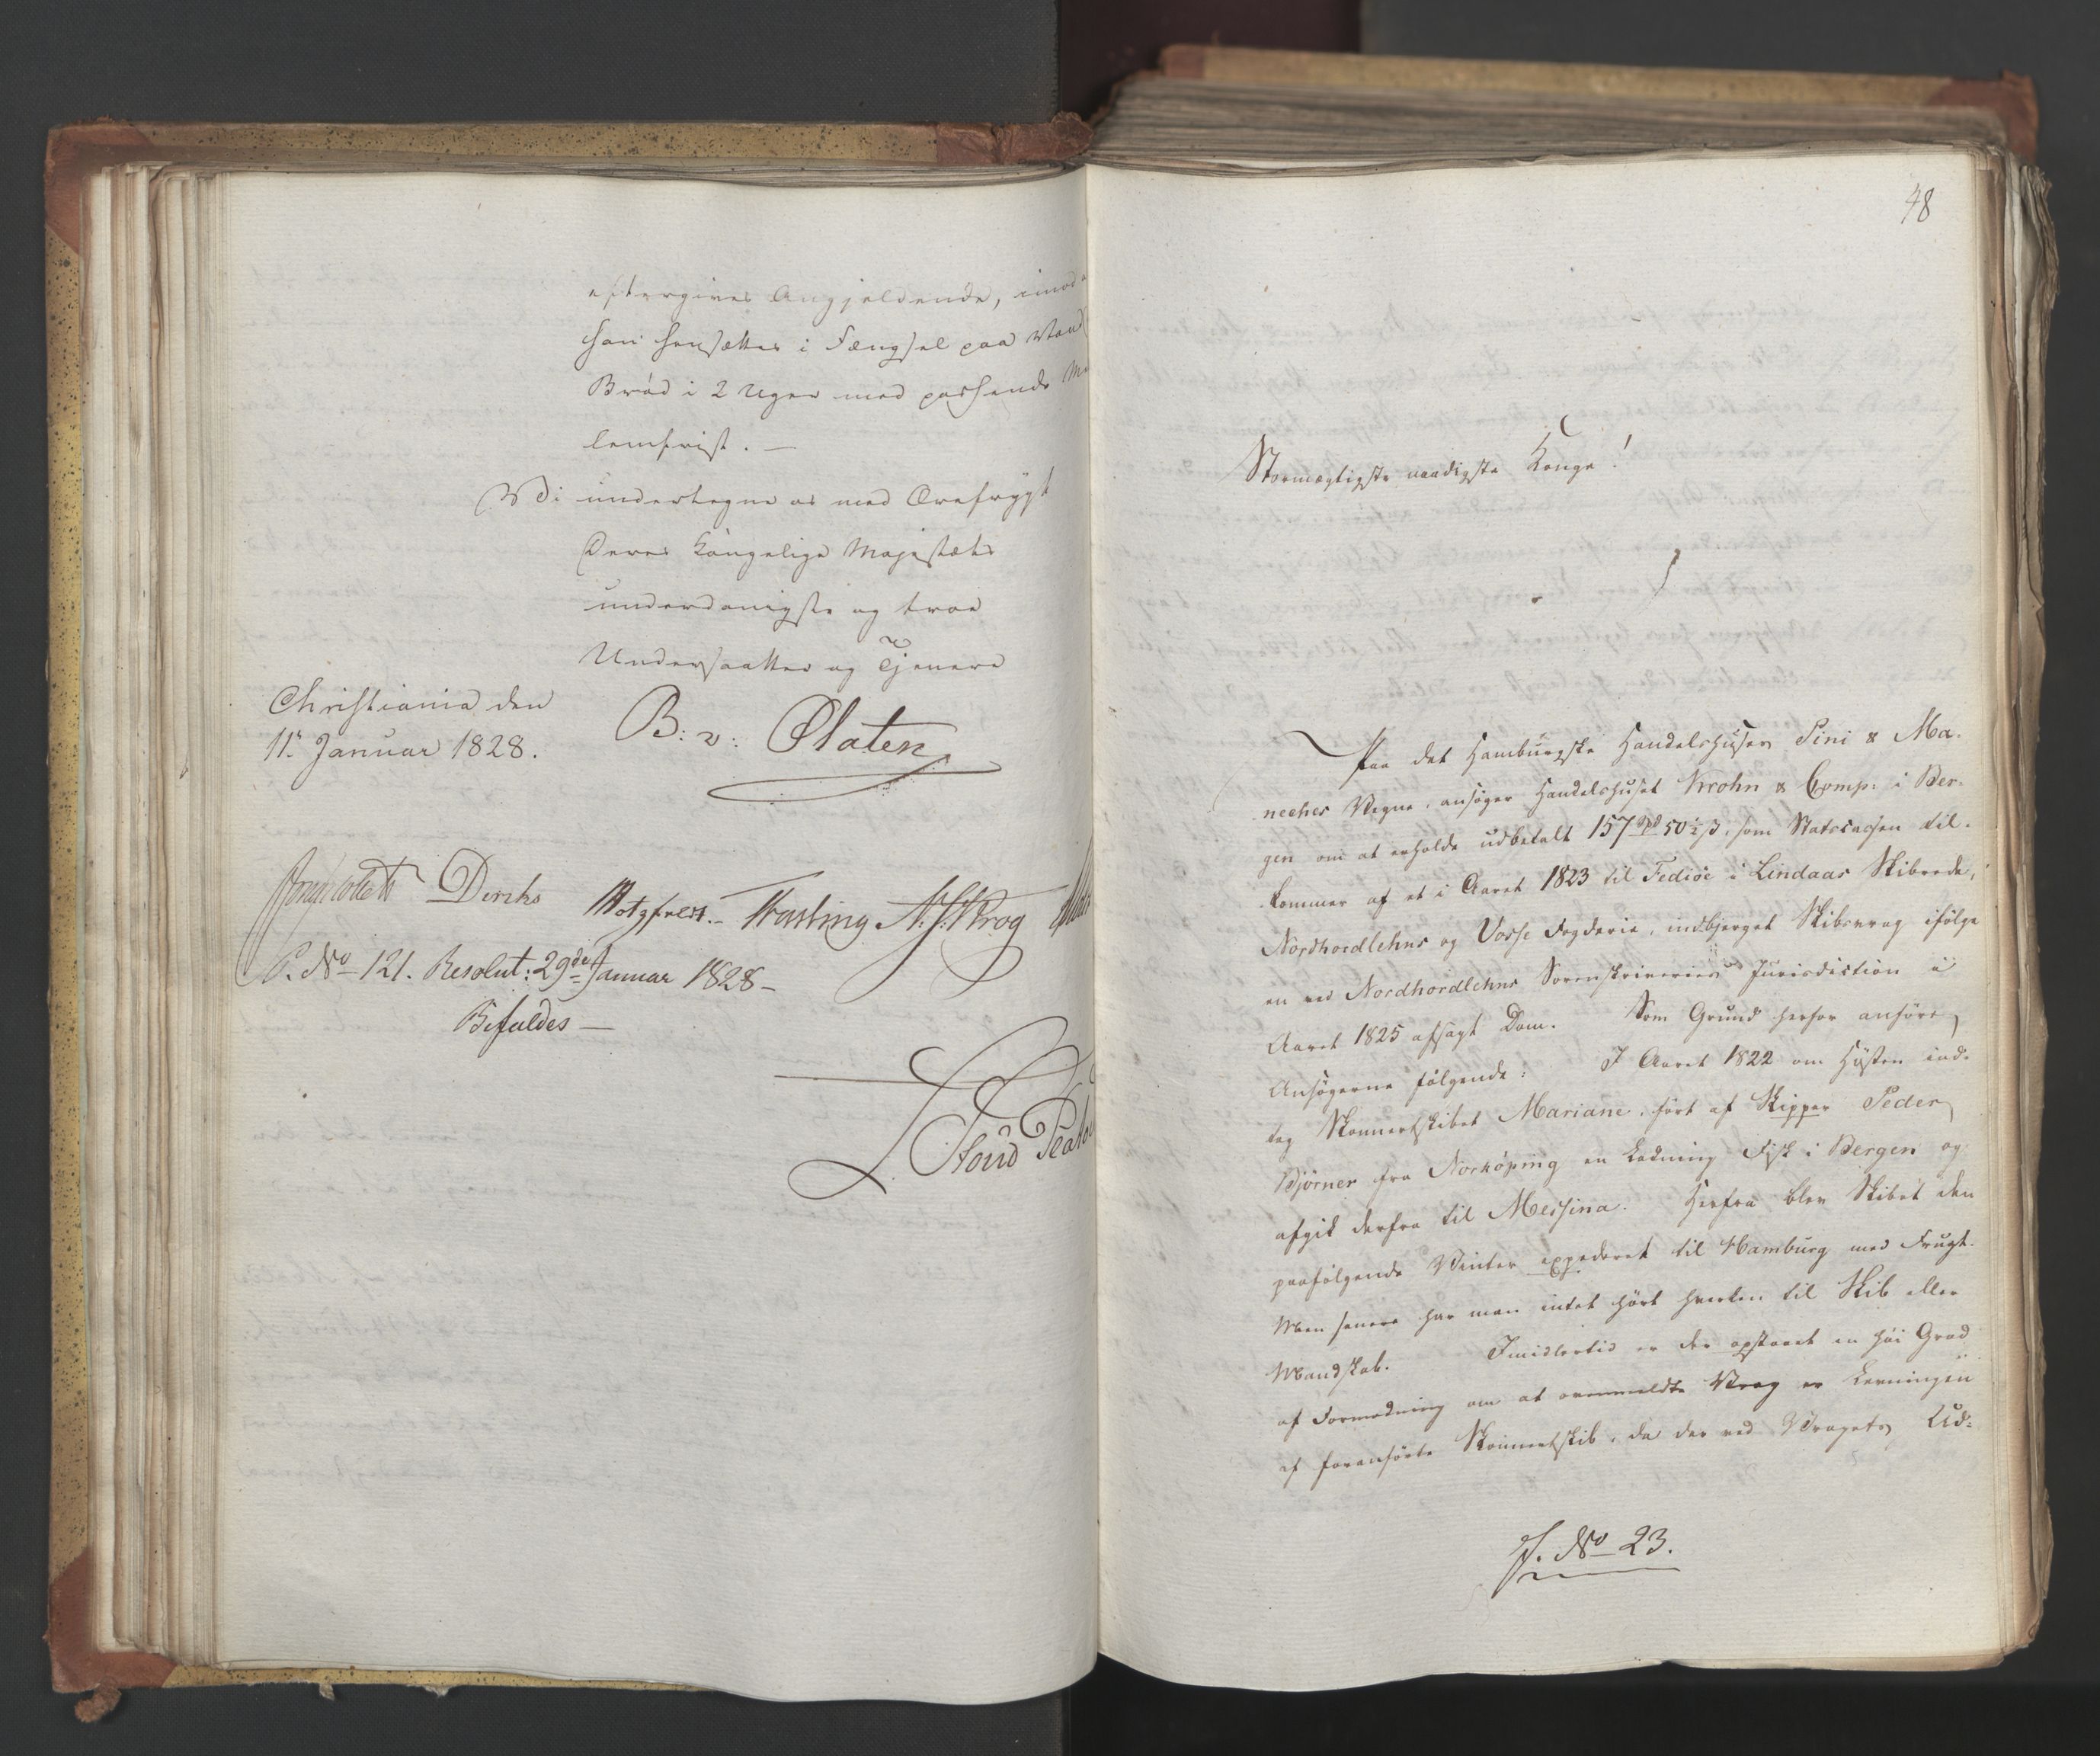 eftergives Angjeldende, imod a
han hensættes i Fængsel paa Vand
Brød i 2 Uger med passende Me
lemfrist. —
Vi undertegne os med Ærefrygt
Deres Kongelige Majestæts
underdanigste og troe
Undersaatter og Tjenere
Christiania den
11te Januar 1828.
B: v: Platen
Diriks Motzfeldt. Fasting N. J. Krog
P. No 121. Resolut: 29de Januar 1828 –
Bifaldes —
48
Stormægtigste naadigste Konge!
Paa det Hamburgske Handelshuses Pini & Ma-
neckes Vegne, ansøger Handelshuset Krohn & Comp: i Ber-
gen om at erholde udbetalt 157 Spd 50½ ß, som Statscassen til-
kommer af et i Aaret 1823 til Fediøe i Lindaas Skibrede,
Nordhordlehns og Vosse Fogderie, indbjerget Skibsvrag ifølge
en ved Nordhordlehns Sorenskriveries Jurisdiction i
Aaret 1825 afsagt Dom. Som Grund herfor anføre
Ansøgerne følgende: I Aaret 1822 om Høsten ind-
tog Skonnertskibet Mariane, ført af Skipper Peder
Bjørner fra Norkøping en Ladning Fisk i Bergen og
afgik derfra til Messina. Herfra blev Skibet den
paafølgende Vinter expederet til Hamburg med Frugt.
Men senere har man intet hørt hverken til Skib eller
Mandskab. Imidlertid er der opstaaet en høi Grad
af Formodning om at ovenmeldte Vrag er Levningen
af foranførte Skonnertskib, da der ved Vragets Ud-
J. No 23.